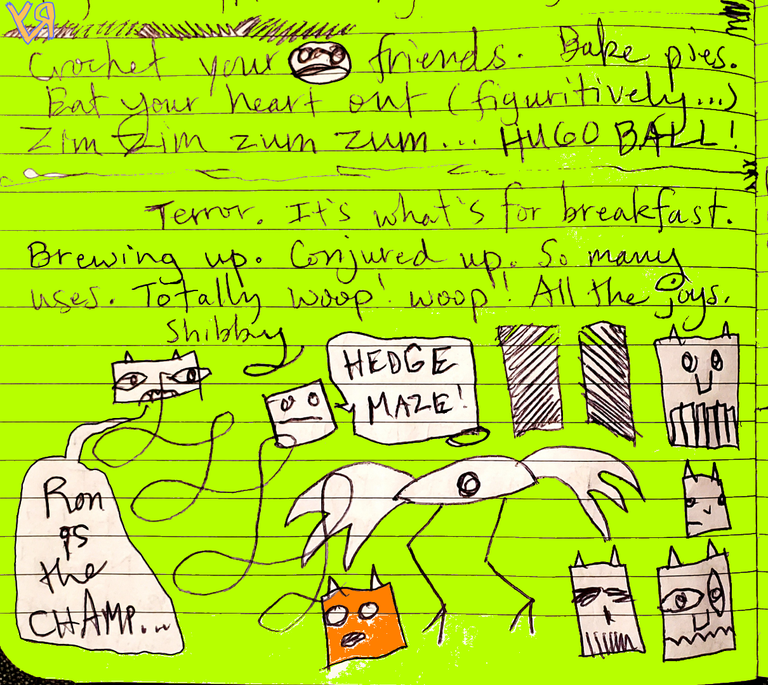 Crochet your friends. Bake pies.
Eat your heart out (figuritively...)
Zim Zim zum zum... HUGO BALL!
Terror. It's what's for breakfast.
Brewing up. Conjured up. So many
uses. Totally woop! woop! All the joys.
Shibby
HEDGE
MAZE!
Ron
is
the
CHAMP...